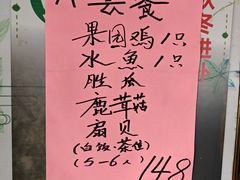 A 套餐
果園鸡1只
水魚1只
胜瓜
鹿茸菇
扇贝
(白饭·茶位)
(5-6人) 148